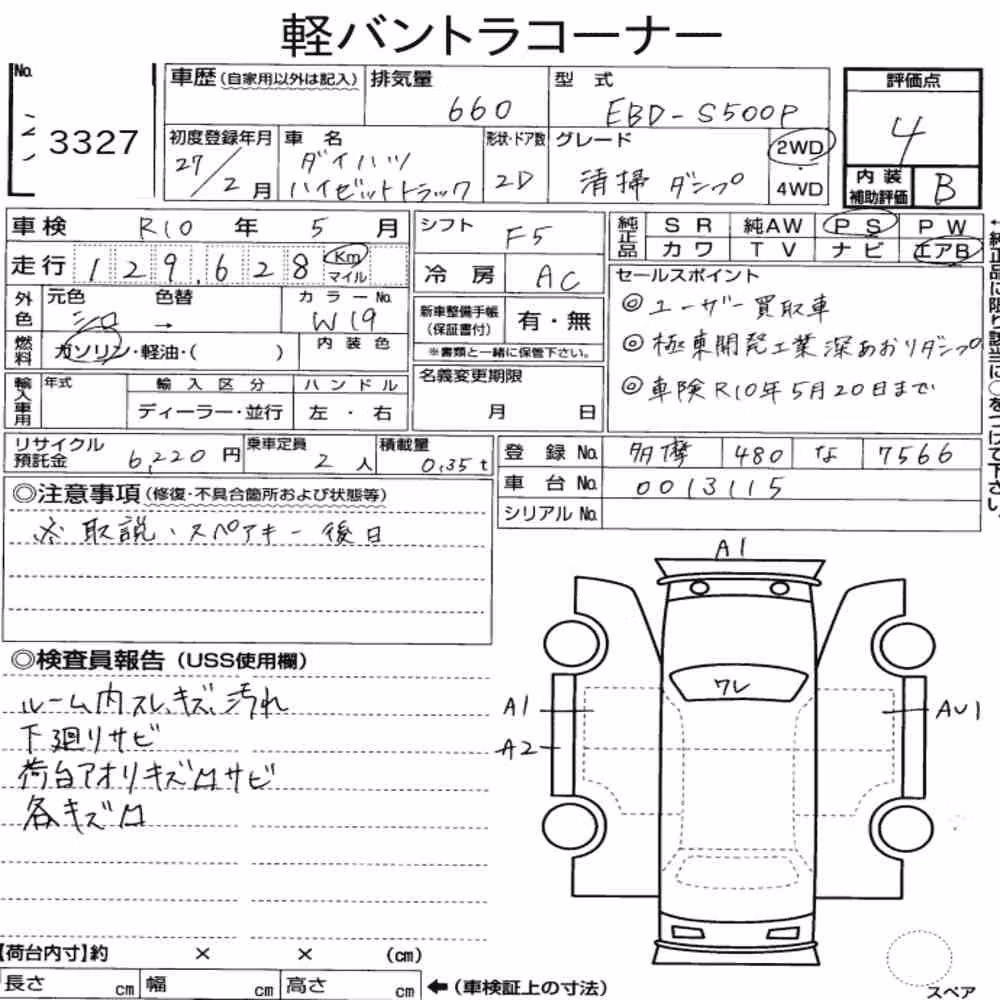 軽バントラコーナー
No.
3327
車歴(自家用以外は記入)
排気量
660
型 式
EBD-S500P
評価点
4
初度登録年月
27/2月
車 名
ダイハツ
ハイゼットトラック
形状・ドア数
2D
グレード
清掃 ダンプ
2WD
4WD
内 装
補助評価
B
車検 R10 年 5 月
走行 129,628 Km
マイル
シフト F5
冷 房 AC
純正品
SR 純AW PS PW
カワ TV ナビ エアB
外色
元色 色替 カラーNo.
シロ → W19
燃料
ガソリン・軽油・( )
内 装 色
新車整備手帳
(保証書付)
有・無
※書類と一緒に保管下さい。
セールスポイント
◎ユーザー買取車
◎極東開発工業深あおりダンプ
◎車険R10年5月20日まで
←純正品に限り該当に○をつけて下さい。
輸入車用
年式 輸 入 区 分 ハ ン ド ル
ディーラー・並行 左 ・ 右
名義変更期限
月 日
リサイクル
預託金 6,220 円
乗車定員
2 人
積載量
0.35 t
登 録 No. 多摩 480 な 7566
車 台 No. 0013115
シリアル No.
◎注意事項(修復・不具合箇所および状態等)
※取説、スペアキー後日
◎検査員報告(USS使用欄)
ルーム内スレ、キズ、汚れ
下廻リサビ
荷台アオリキズ凹サビ
各キズ凹
A1
ワレ
A1
A2
AU1
【荷台内寸】約 × × (cm)
長さ cm 幅 cm 高さ cm ←(車検証上の寸法)
スペア